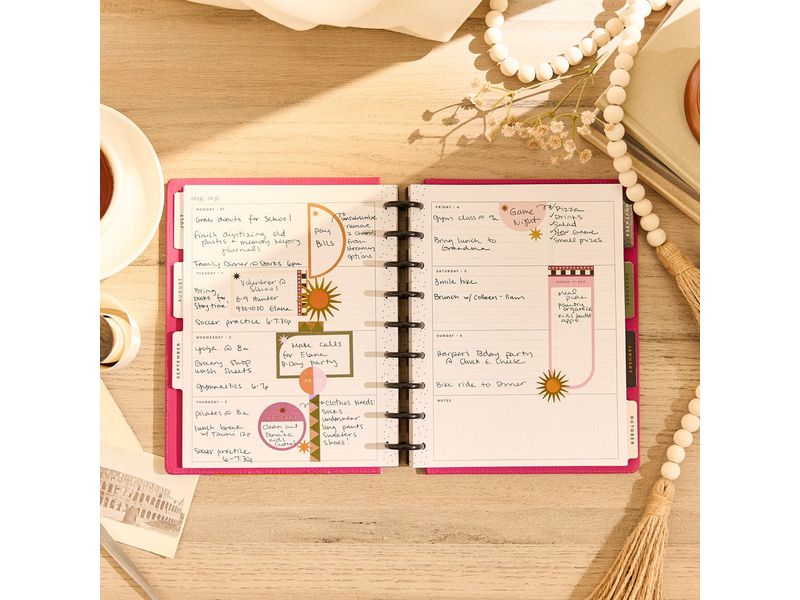 aug/sep
MONDAY • 31
Grab donuts for School
finish digitizing old
photos + memory keeping
journals
Family Dinner @ Starks 6pm
PAY
BILLS
unsubscribe
remove
2 channels
from
streaming
options
TUESDAY • 1
Bring
books for
storytime
Volunteer @
School
8-9 Hunter
930-10:30 Elana
Soccer practice 6-7:30p
WEDNESDAY • 2
yoga @ 8a
Grocery Shop
wash Sheets
gymnastics 6-7p
Make calls
for Elana
B-Day party
THURSDAY • 3
pilates @ 8a
lunch break
w/ Tauni 12p
Soccer practice
6-7:30p
clean out
+
Donate
kids
clothes
clothes needs:
socks
underwear
long pants
sweaters
shoes
FRIDAY • 4
gym class @ 9a
Bring lunch to
Grandma
Game
Night
Pizza
Drinks
Salad
New Game
Small prizes
SATURDAY • 5
3mile hike
Brunch w/ Colleen - 11am
meal
plan
pantry
organize
kids
SUNDAY • 6
Harper's Bday party
@ Chuck E Cheese
Bike ride to Dinner
NOTES
JULY
AUGUST
SEPTEMBER
NOVEMBER
JANUARY
OCTOBER